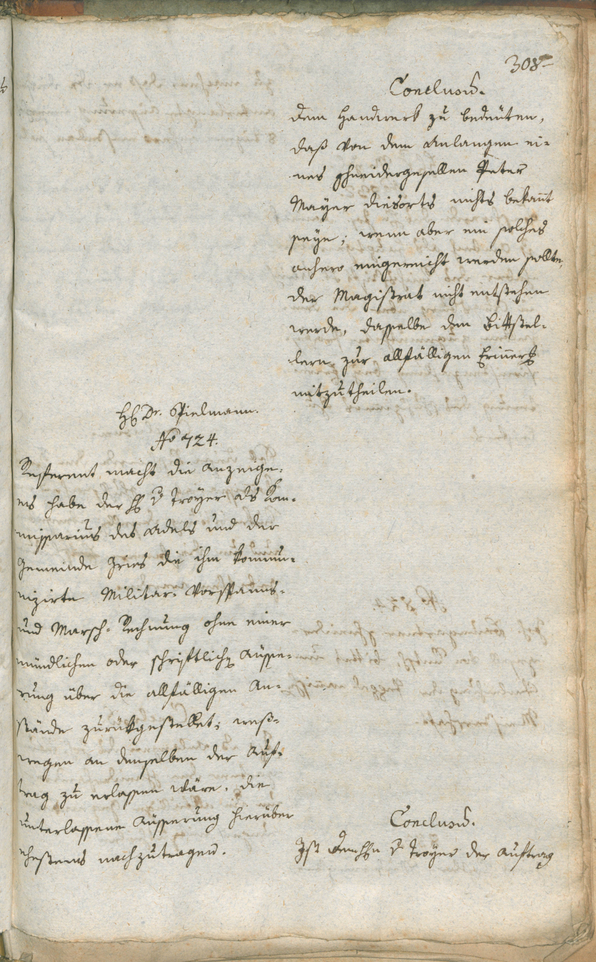 308
Conclusum.
dem Handwerk zu bedeuten,
daß von dem Anlangen ei-
nes Schneidergesellen Peter
Mayer diesorts nichts bekannt
seye; wenn aber ein solches
anhero eingereicht werden sollte,
der Magistrat nicht entstehen
werde, dasselbe den Bittstel-
lern zur allfälligen Erinnerung
mitzutheilen.
H. Dr. Spielmann.
No 724.
Referent macht die Anzeige,
es habe der H. v Troyer als Kom-
missarius des Adels und der
Gemeinde Gries die ihm kommu-
nizirte Militar-Vorspanns-
und Marsch-Rechnung ohne einer
mündlichen oder schriftlichen Äusse-
rung über die allfälligen An-
stände zurückgestellet; wes-
wegen an denselben der Auf-
trag zu erlassen wäre, die
unterlassene Äusserung hierüber
ehestens nachzutragen.
Conclusum.
Ist dem H. v Troyer der Auftrag